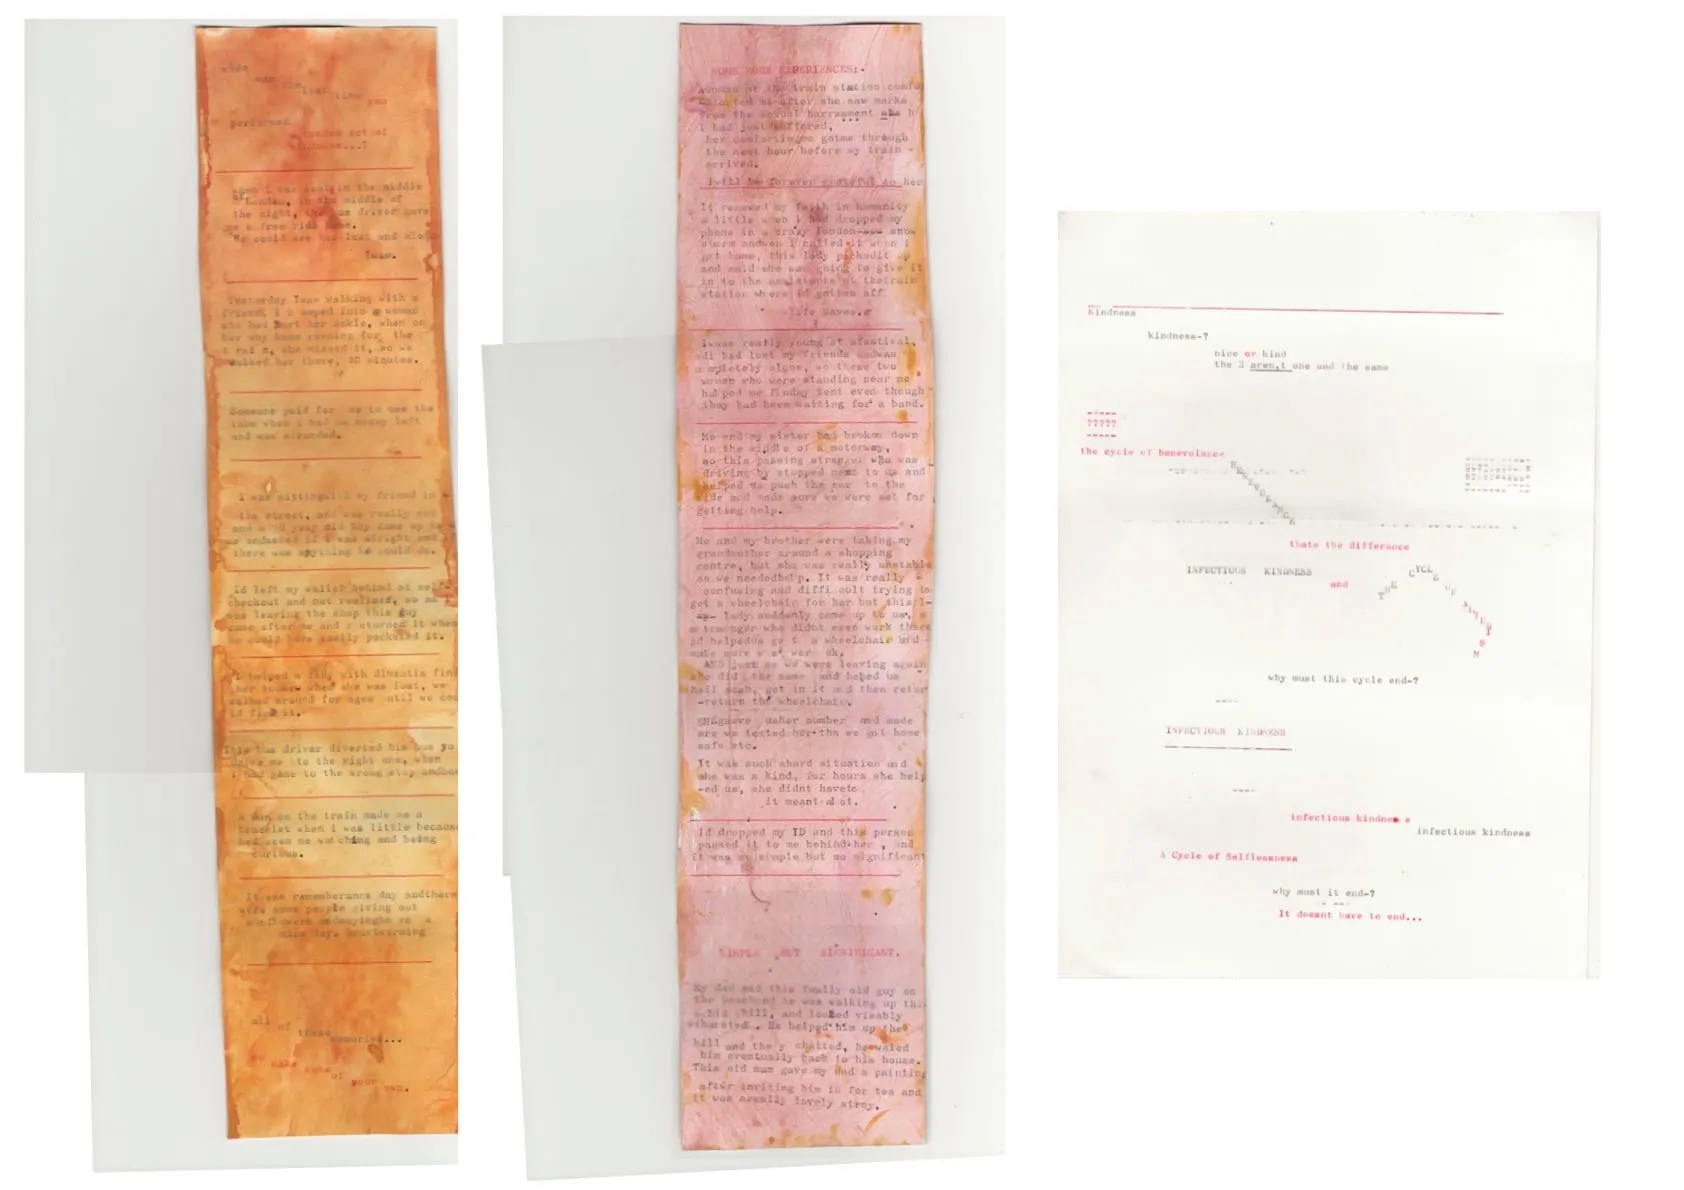 when
was the
last time you
performed
random act of
kindness...?
when i was lost in the middle
of London, in the middle of
the night, the bus driver gave
me a free ride home.
He could see how lost and alone
Iwas.
Yesterday Iwas walking with a
friend, i b umped into a woman
who had hurt her ankle, when on
her way home running for the
t rai n, she missed it, so we
walked her there, 40 minutes.
Someone paid for me to use the
tube when i had no money left
and was stranded.
I was sittingwith my friend in
the street, and was really
and a year old boy came up to
me andasked if i was alright and
there was anything he could do.
id left my wallet behind at self
checkout and not realised, so as i
was leaving the shop this guy
came after me and r eturned it when
he could have easily pocketed it.
I helped a lady with dimentia find
her house when she was lost, we
walked around for ages until we
id find it.
This bus driver diverted his bus
drive me to the right one, when
i had gone to the wrong stop
A man on the train made me a
bracelet when i was little because
had seen me wat ching and being
curious.
It was rememberance day andthere
were some people giving out
sunflowers andsaying a
nice day. heartwarming
all of these memories...
go make some of your own.
SOME MORE EXPERIENCES:
Awoman at the train station
after she saw marks
from the sexual harrasment she h
I had just suffered,
her comfortingme gotme through
the next hour before my train -
arrived.
Iwill be forever grateful to her
It renewed my faith in humanity
a little when i had dropped my
phone in a crazy london snow
storm andwen i called it when i
got home, this lady pickedit up
and said she was going to give it
in to the assistants at thetrain
station where id gotten off
life saver.
iwas really young at afestival,
andi had lost my friends andwas
completely alone, so these two
women who were standing near me
hel ped me findmy tent even though
they had been waiting for a band.
Me and my sister had broken down
in the middle of a motorway,
so this passing stranger who was
driving by stopped next to us and
helped us push the car to the
side and made sure we were set for
getting help.
Me and my brother were taking my
grandmother around a shopping
centre, but she was really unstable
so we neededhelp. It was really
confusing and diffi cult trying to
get a wheelchair for her but this l-
lady suddenly came up to us, a
stranger who didnt even work there
nd helpedus ge t a wheelchair and -
make sure w e wer ok,
AND just as we were leaving again
she did the same and heped us
hail acab, get in it and then retur
-return the wheelchair.
SHEgaeve usher number and made
sre we texted her tha we got home
safe etc.
It was such ahard situation and
she was a kind, for hours she help
-ed us, she didnt haveto
it meant al ot.
Id dropped my ID and this person
passed it to me behind her , and
it was so simple but so significant
SIMPLE BUT SIGNIFICANT.
My dad and this really old guy on
the beachand he was walking up thi
s big hill, and looked visably
exhausted . He helped him up the
hill and the y chatted, he waled
him eventually back to his house.
This old man gave my dad a painting
after inviting him in for tea and
it was areally lovely stroy.
Kindness
kindness-?
nice or kind
the 2 aren,t one and the same
-----
?????
-----
the cycle of benevolance
BENEVOLANCE
thats the difference
INFECTIOUS KINDNESS
and
THE CYCLE OF ALTUISM
why must this cycle end-?
----
INFECTIOUS KINDNESS
----
infectious kindness
infectious kindness
A Cycle of Selflessness
why must it end-?
It doesnt have to end...